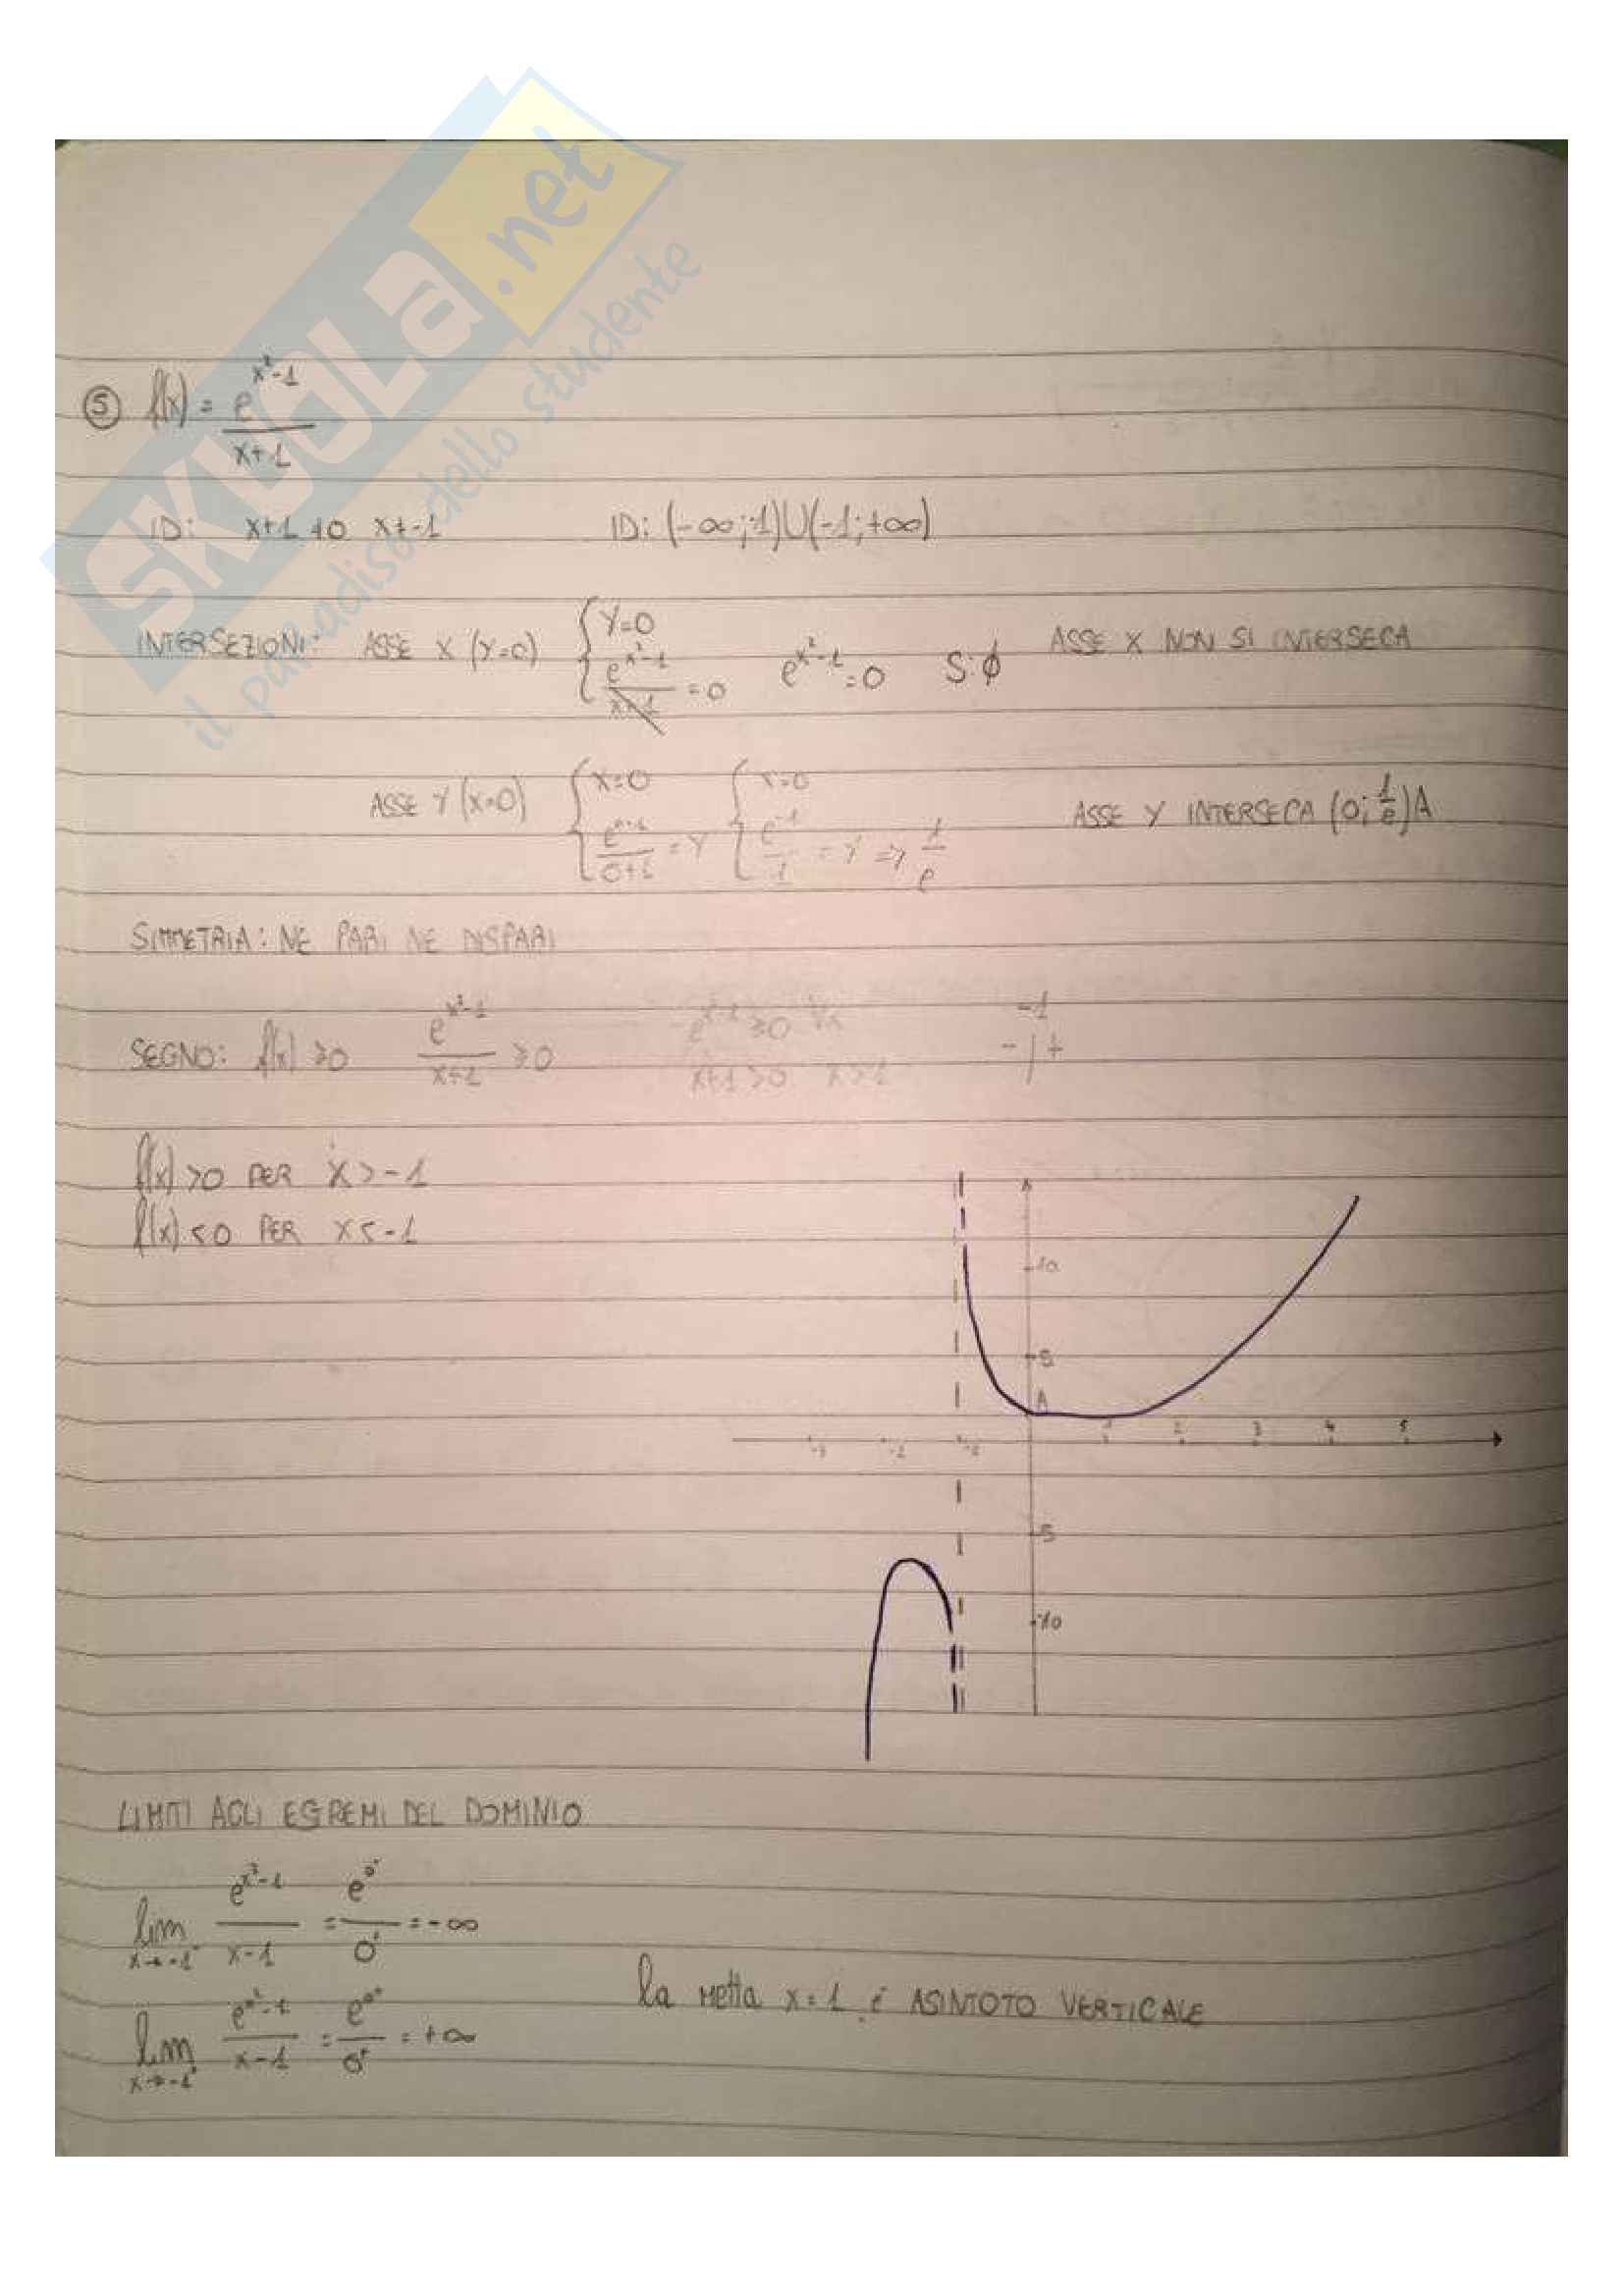 SKUOLa.net
il paradiso dello studente
⑤ f(x) = e^(x²-1) / (x+1)
ID: x+1≠0 x≠-1 ID: (-∞;-1)U(-1;+∞)
INTERSEZIONI: ASSE X (Y=0) { Y=0 ; e^(x²-1)/(x+1) = 0 e^(x²-1) = 0 S: ∅ ASSE X NON SI INTERSECA
ASSE Y (X=0) { x=0 ; /(0+1) = Y { x=0 ; e^(-1)/1 = Y => 1/e ASSE Y INTERSECA (0; 1/e) A
SIMMETRIA: NE PARI NE DISPARI
SEGNO: f(x) ≥0 e^(x²-1)/(x+1) ≥0 e^(x²-1) ≥0 ∀x -1
x+1 >0 - | +
f(x) >0 PER x > -1
f(x) <0 PER x < -1
10
5
A
-3 -2 1 2 3 4 5
-5
-10
LIMITI AGLI ESTREMI DEL DOMINIO
lim x→-1⁻ e^(x²-1)/(x-1) = e^(0⁺)/0⁻ = -∞
La retta x=1 é ASINTOTO VERTICALE
lim x→-1⁺ e^(x²-1)/(x-1) = e^(0⁺)/0⁺ = +∞